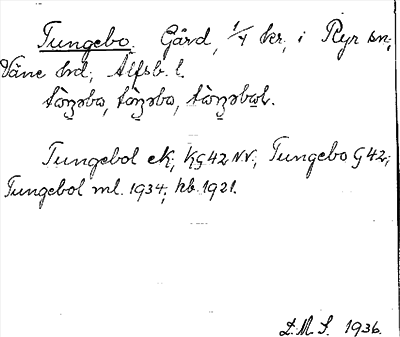 Tungebo. Gård, 1/4 kr, i Ryr sn,
Väne hd, Älfsb. l.
Tungebol ek, kg 42 NV, Tungebo g 42,
Tungebol ml. 1934, kb. 1921.
D.M.S. 1936.